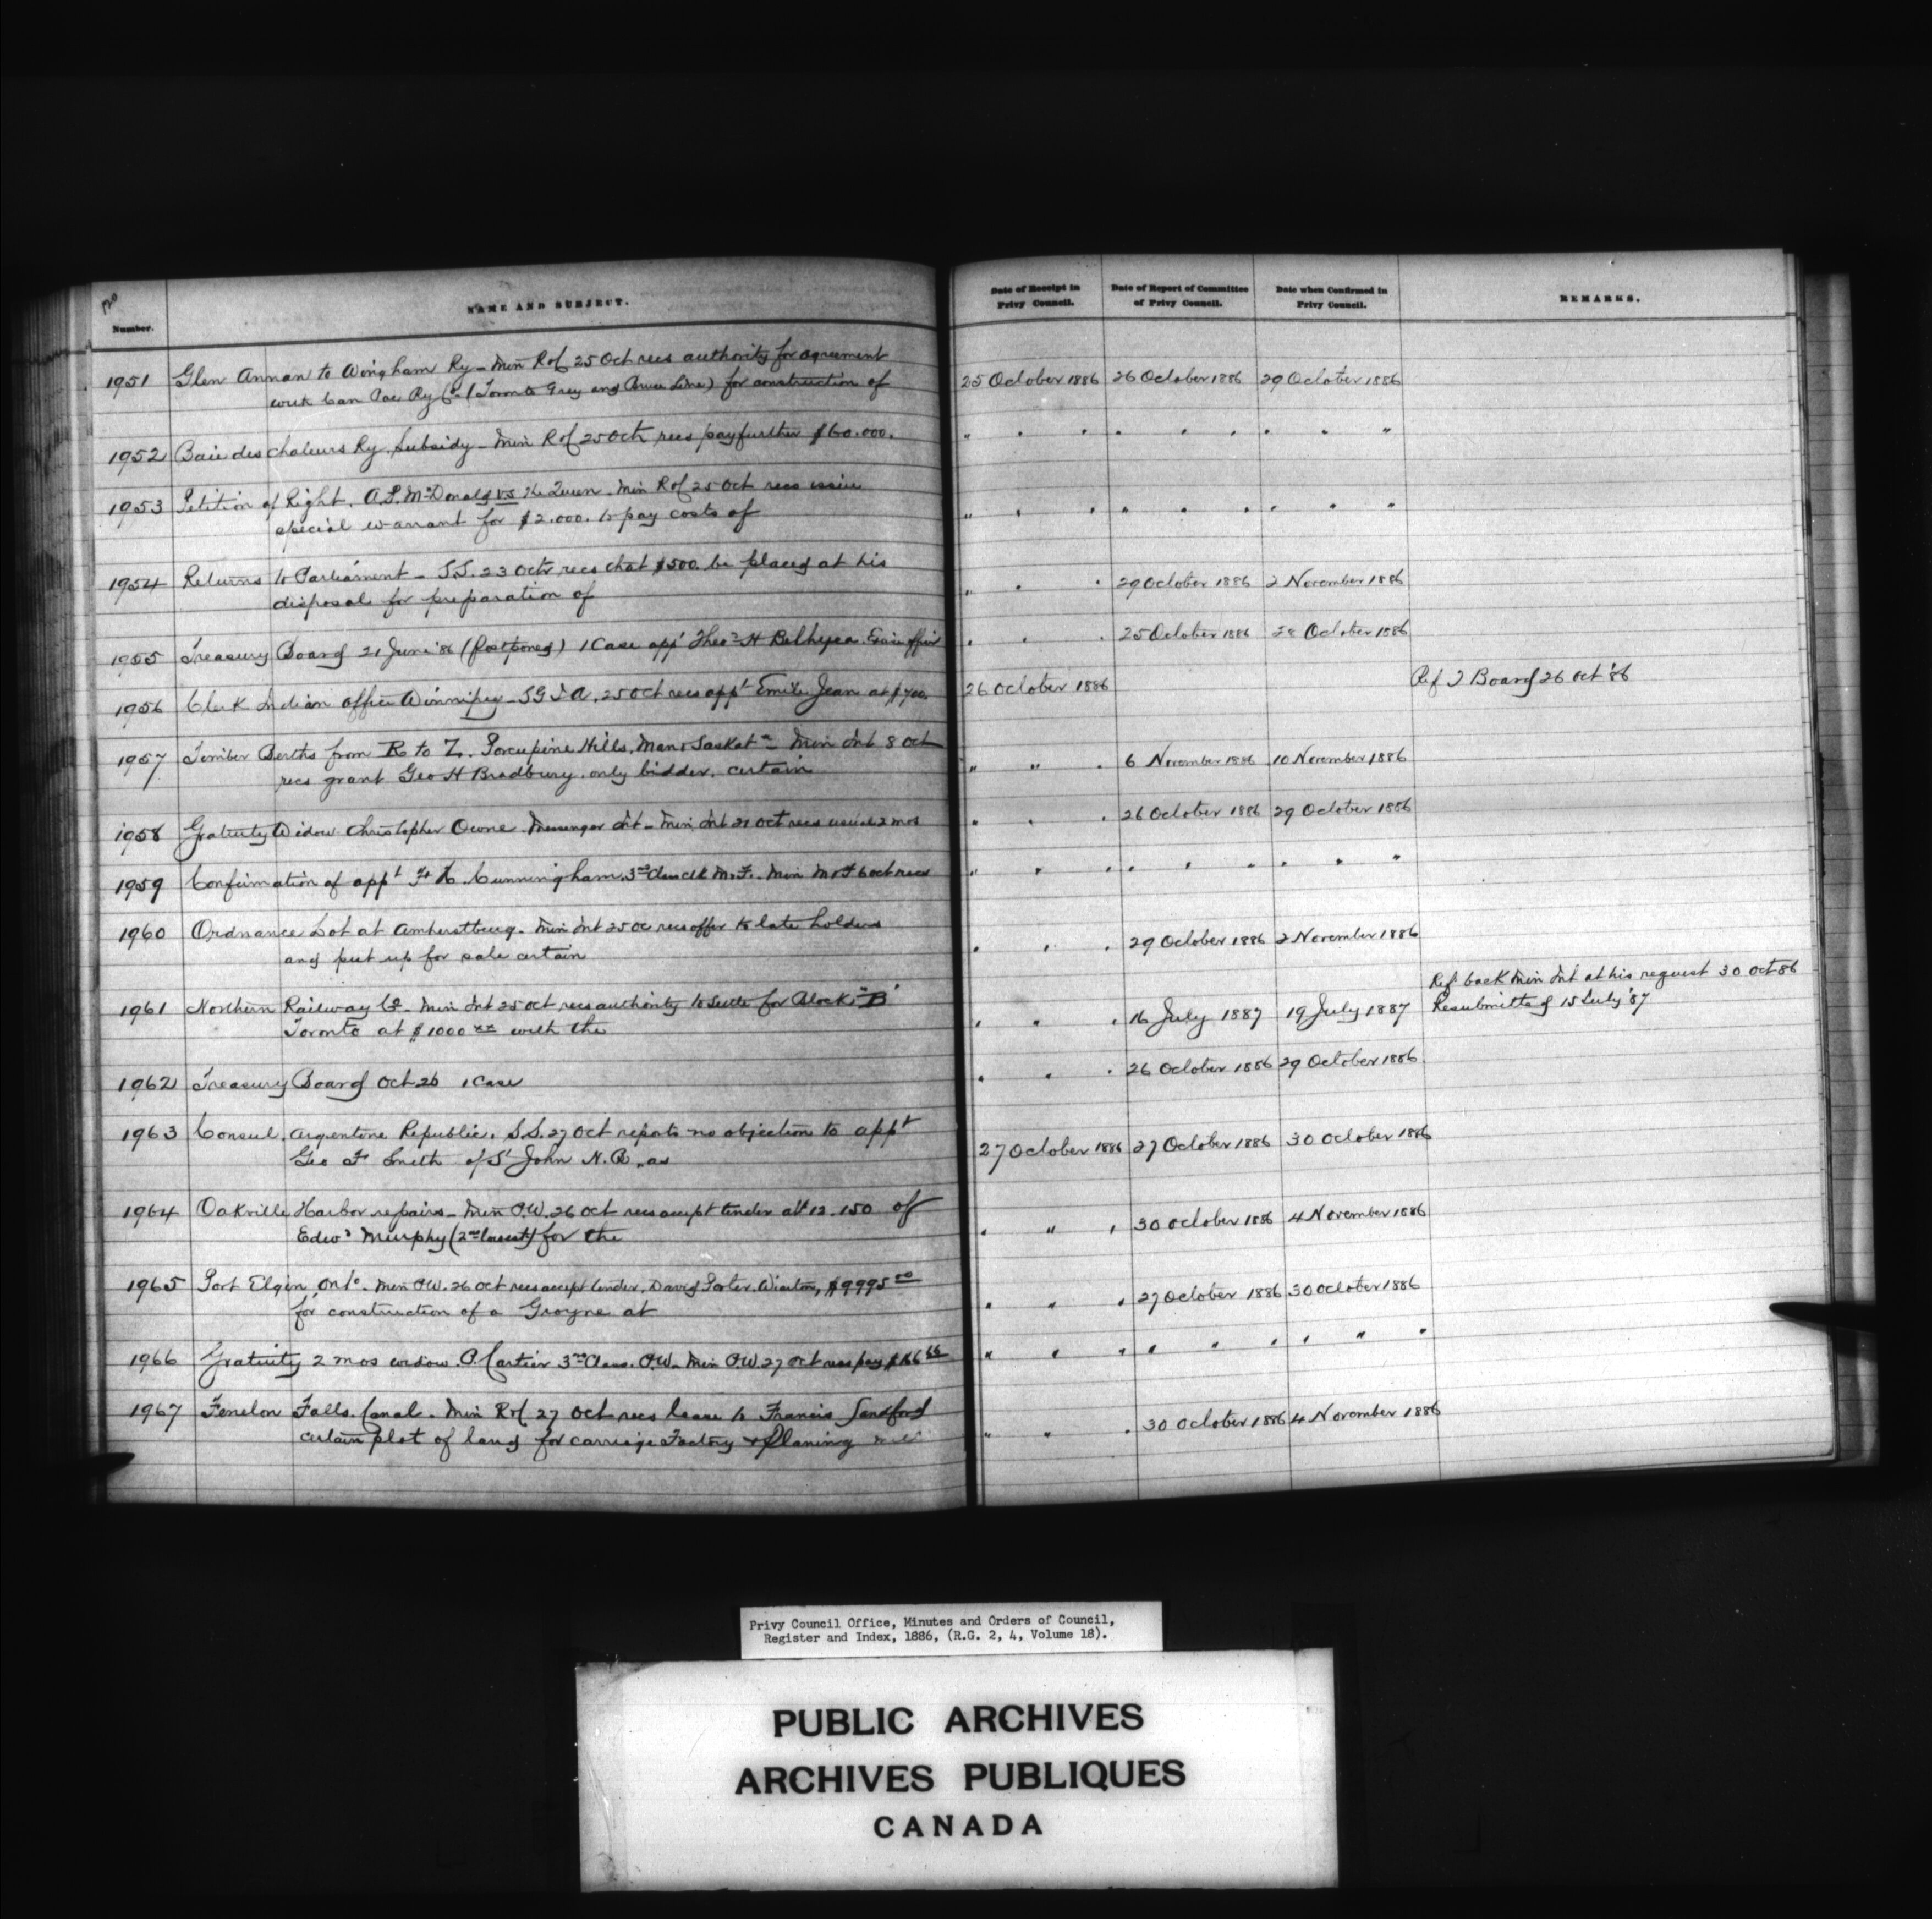 Number.
NAME AND SUBJECT.
Date of Receipt in Privy Council.
Date of Report of Committee of Privy Council.
Date when Confirmed in Privy Council.
REMARKS.
1951 Glen Annan to Wingham Ry - Min R of 25 Oct recs authority for agreement
with Can Pac Ry Co (Toronto Grey and Bruce Line) for construction of
25 October 1886 26 October 1886 29 October 1886
1952 Baie des chaleurs Ry. Subsidy - Min R of 25 Oct, recs pay further $60.000.
" " " " " " " " "
1953 Petition of Right. A.P. McDonald vs the Queen. Min R of 25 Oct recs issue
special warrant for $2.000. to pay costs of
" " " " " " " " "
1954 Returns to Parliament - S.S. 23 Octr recs that $500. be placed at his
disposal for preparation of
" " " 29 October 1886 2 November 1886
1955 Treasury Board 21 June '86 (postponed) 1 Case appt Theos H
" " " 25 October 1886 28 October 1886
1956 Clerk Indian Office Winnipeg - SGIA. 25 Oct recs appt Emile Jean at $700.
26 October 1886 Ref T Board 26 Oct '86
1957 Timber Berths from R to Z. Porcupine Hills. Man & Saskatn - Min Int 8 Oct
recs grant Geo H Bradbury. only bidder. certain
" " " 6 November 1886 10 November 1886
1958 Gratuity Widow Christopher Messenger Int - Min Int 21 Oct recs usual 2 mos
" " " 26 October 1886 29 October 1886
1959 Confirmation of appt F H Cunningham. 3rd Class clk M.F. - Min M & F 6 oct recs
" " " " " " " " "
1960 Ordnance Lot at Amherstburg - Min Int 25 Oc recs offer to late holders
and put up for sale certain
" " " 29 October 1886 2 November 1886
1961 Northern Railway Co - Min Int 25 oct, recs authority to settle for Block "B"
Toronto at $1000 xx with the
" " " 16 July 1887 19 July 1887 Ref back Min Int at his request 30 Oct 86
Resubmitted 15 July '87
1962 Treasury Board Oct 26 1 Case
" " " 26 October 1886 29 October 1886
1963 Consul. Argentine Republic. S.S. 27 Oct reports no objection to appt
Geo F Smith of St John N.B. as
27 October 1886 27 October 1886 30 October 1886
1964 Oakville Harbor repairs - Min P.W. 26 Oct recs accept tender at $12.150 of
Edwd Murphy (2nd lowest) for the
" " " 30 October 1886 4 November 1886
1965 Port Elgin, Onto. Min P.W. 26 Oct recs accept tender, David Porter. Wiarton, $9995 00
for construction of a Groyne at
" " " 27 October 1886 30 October 1886
1966 Gratuity 2 mos widow P. Cartier 3rd Class. P.W. - Min P.W. 27 Oct recs pay
" " " " " " " " "
1967 Fenelon Falls Canal. Min R of 27 Oct recs lease to Francis Sandford
certain plot of land for carriage Factory & Planing
" " " 30 October 1886 4 November 1886
Privy Council Office, Minutes and Orders of Council,
Register and Index, 1886, (R.G. 2, 4, Volume 18).
PUBLIC ARCHIVES
ARCHIVES PUBLIQUES
CANADA